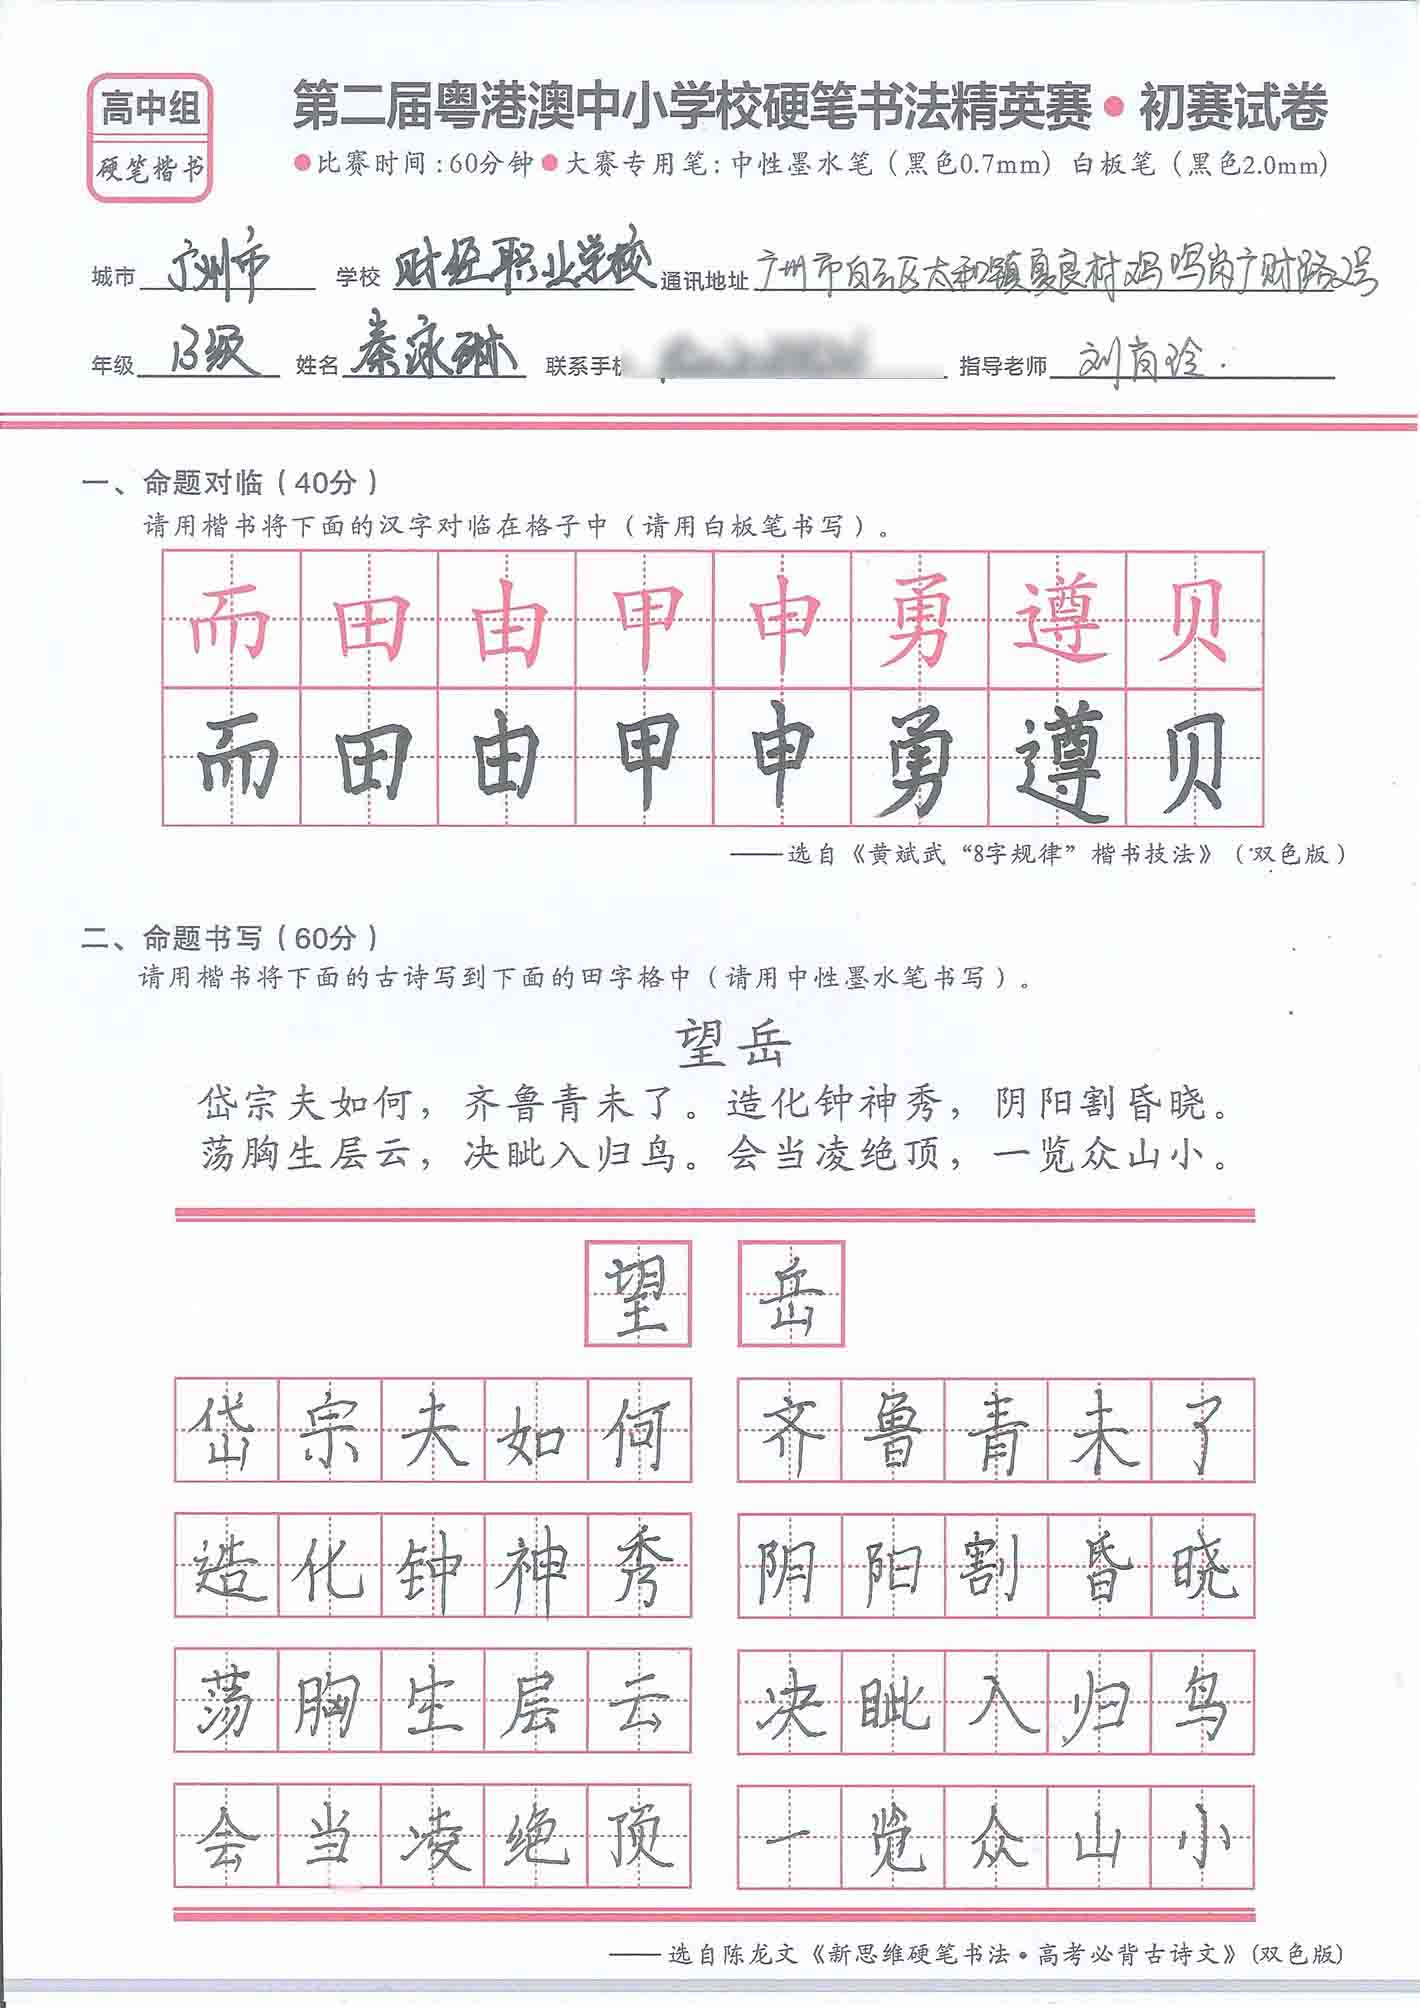 高中组
硬笔楷书
第二届粤港澳中小学校硬笔书法精英赛•初赛试卷
●比赛时间:60分钟●大赛专用笔:中性墨水笔(黑色0.7mm) 白板笔(黑色2.0mm)
城市 广州市 学校 财经职业学校 通讯地址 广州市白云区太和镇夏良村鸡鸣岗广财路2号
年级 13级 姓名 秦泳琳 联系手机 指导老师 刘岗玲.
一、命题对临(40分)
请用楷书将下面的汉字对临在格子中(请用白板笔书写)。
而田由甲申勇遵贝
而田由甲申勇遵贝
——选自《黄斌武“8字规律”楷书技法》(双色版)
二、命题书写(60分)
请用楷书将下面的古诗写到下面的田字格中(请用中性墨水笔书写)。
望岳
岱宗夫如何，齐鲁青未了。造化钟神秀，阴阳割昏晓。
荡胸生层云，决眦入归鸟。会当凌绝顶，一览众山小。
望岳
岱宗夫如何 齐鲁青未了
造化钟神秀 阴阳割昏晓
荡胸生层云 决眦入归鸟
会当凌绝顶 一览众山小
——选自陈龙文《新思维硬笔书法•高考必背古诗文》(双色版)